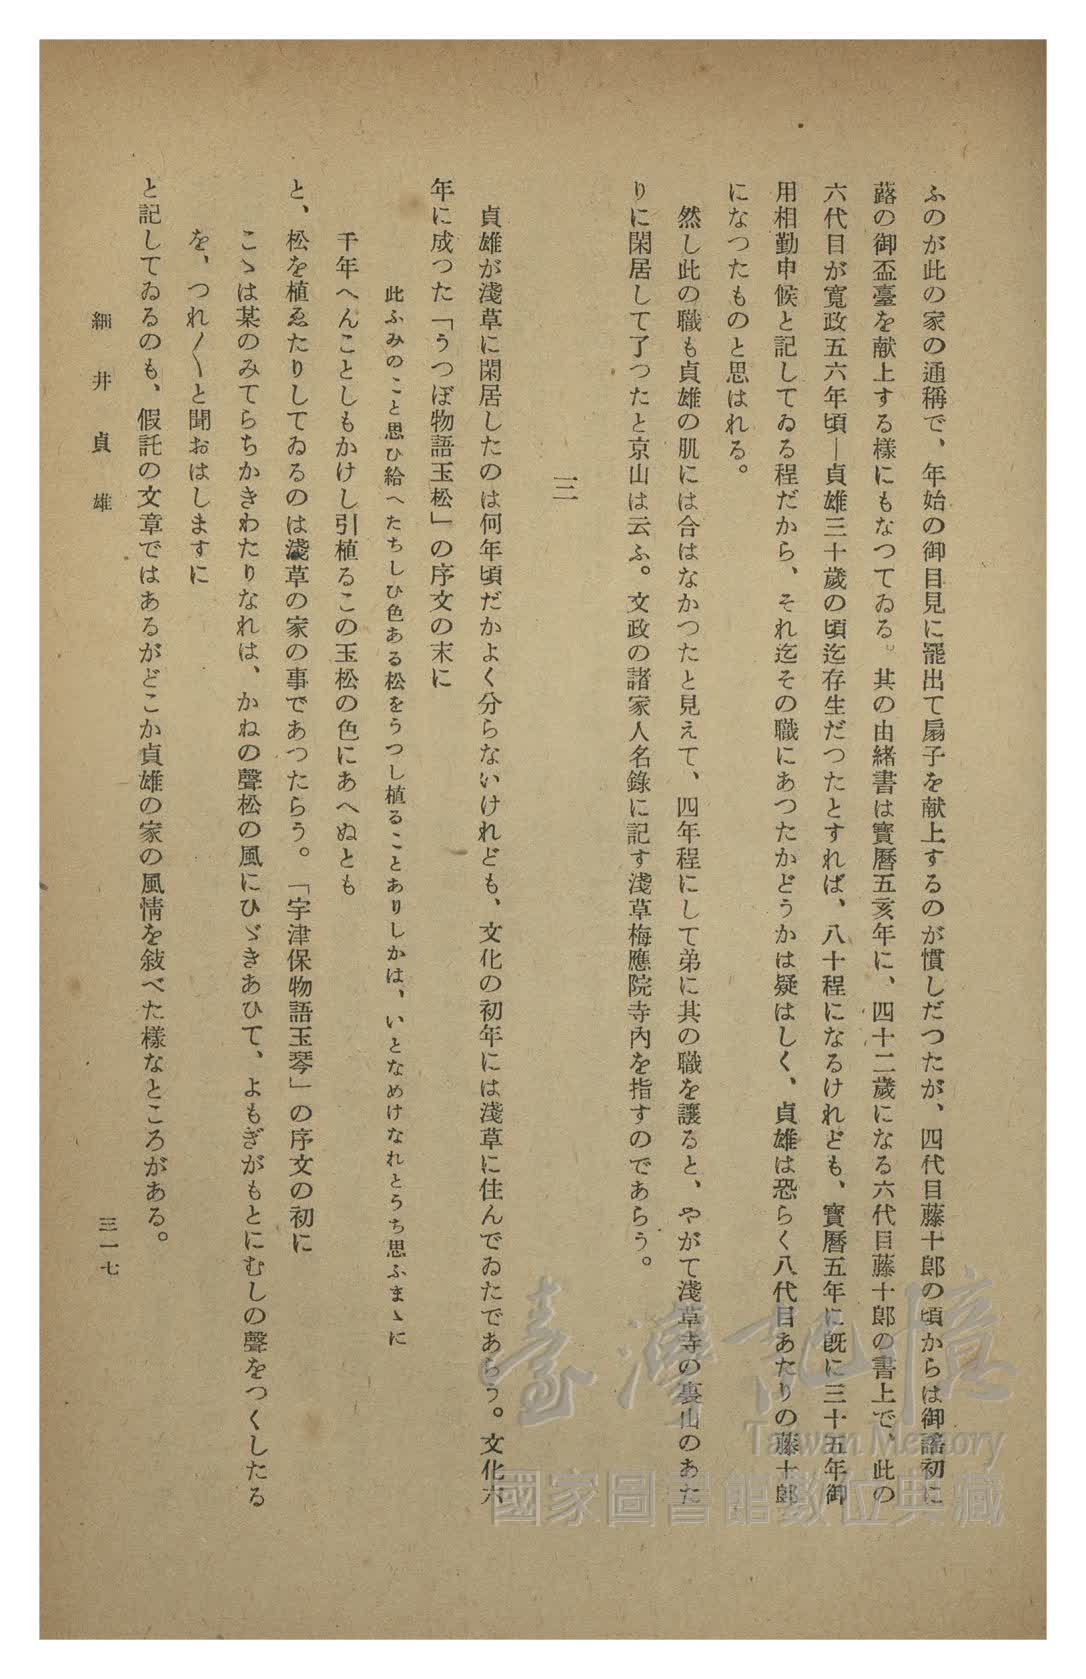 ふのが此の家の通稱で、年始の御目見に罷出て扇子を献上するのが慣しだつたが、四代目藤十郎の頃からは御謠初に
蕗の御盃臺を献上する樣にもなつてゐる。其の由緒書は寶曆五亥年に、四十二歲になる六代目藤十郎の書上で、此の
六代目が寬政五六年頃―貞雄三十歲の頃迄存生だつたとすれば、八十程になるけれども、寶曆五年に旣に三十五年御
用相勤申候と記してゐる程だから、それ迄その職にあつたかどうかは疑はしく、貞雄は恐らく八代目あたりの藤十郎
になつたものと思はれる。
然し此の職も貞雄の肌には合はなかつたと見えて、四年程にして弟に其の職を讓ると、やがて淺草寺の裏山のあた
りに閑居して了つたと京山は云ふ。文政の諸家人名錄に記す淺草梅應院寺內を指すのであらう。
三
貞雄が淺草に閑居したのは何年頃だかよく分らないけれども、文化の初年には淺草に住んでゐたであらう。文化六
年に成つた「うつぼ物語玉松」の序文の末に
此ふみのこと思ひ給へたちしひ色ある松をうつし植ることありしかは、いとなめけなれとうち思ふまゝに
千年へんことしもかけし引植るこの玉松の色にあへぬとも
と、松を植ゑたりしてゐるのは淺草の家の事であつたらう。「宇津保物語玉琴」の序文の初に
こゝは某のみてらちかきわたりなれは、かねの聲松の風にひゞきあひて、よもぎがもとにむしの聲をつくしたる
を、つれ〳〵と聞おはしますに
と記してゐるのも、假託の文章ではあるがどこか貞雄の家の風情を敍べた樣なところがある。
細井貞雄
三一七
臺灣記憶
Taiwan Memory
國家圖書館數位典藏